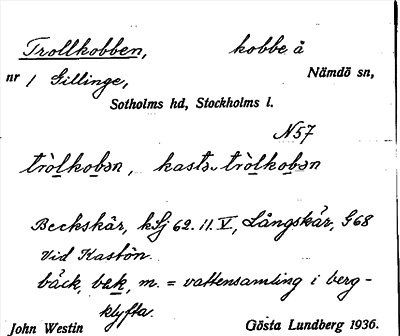 Trollkobben, kobbe å
nr / Gillinge, Nämdö sn,
Sotholms hd, Stockholms l.
N57
tròlkobən, kastə tròlkobən
Beckskär, kSj 62. 11. V, Långskär, G68
vid Kastön.
bäck, bɛk, m. = vattensamling i berg-
klyfta.
John Westin Gösta Lundberg 1936.